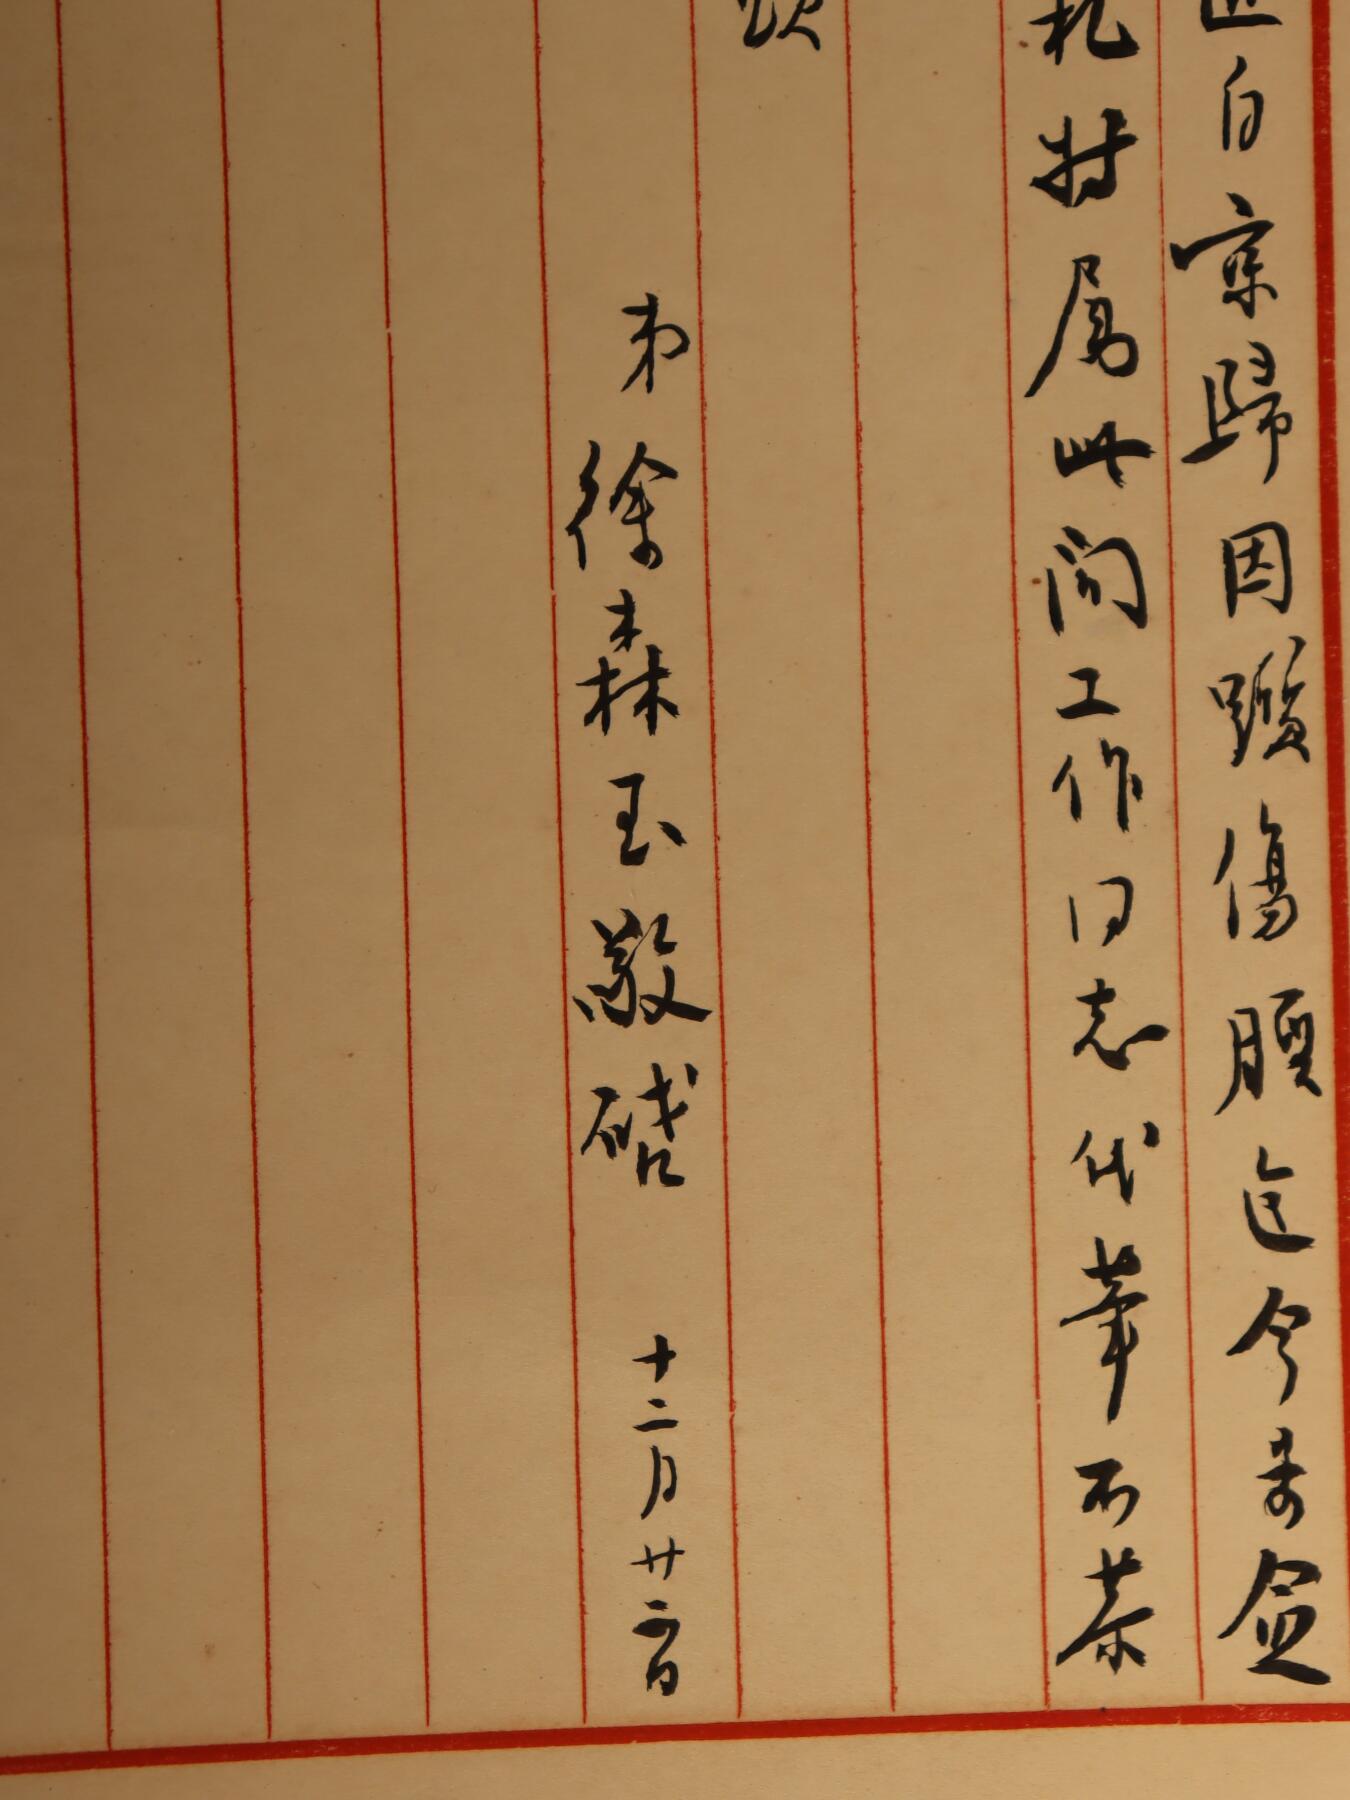 自京歸因躓傷脛迄今未愈
札特屬此間工作同志代筆不恭
頌
弟徐森玉敬啓 十二月廿二日